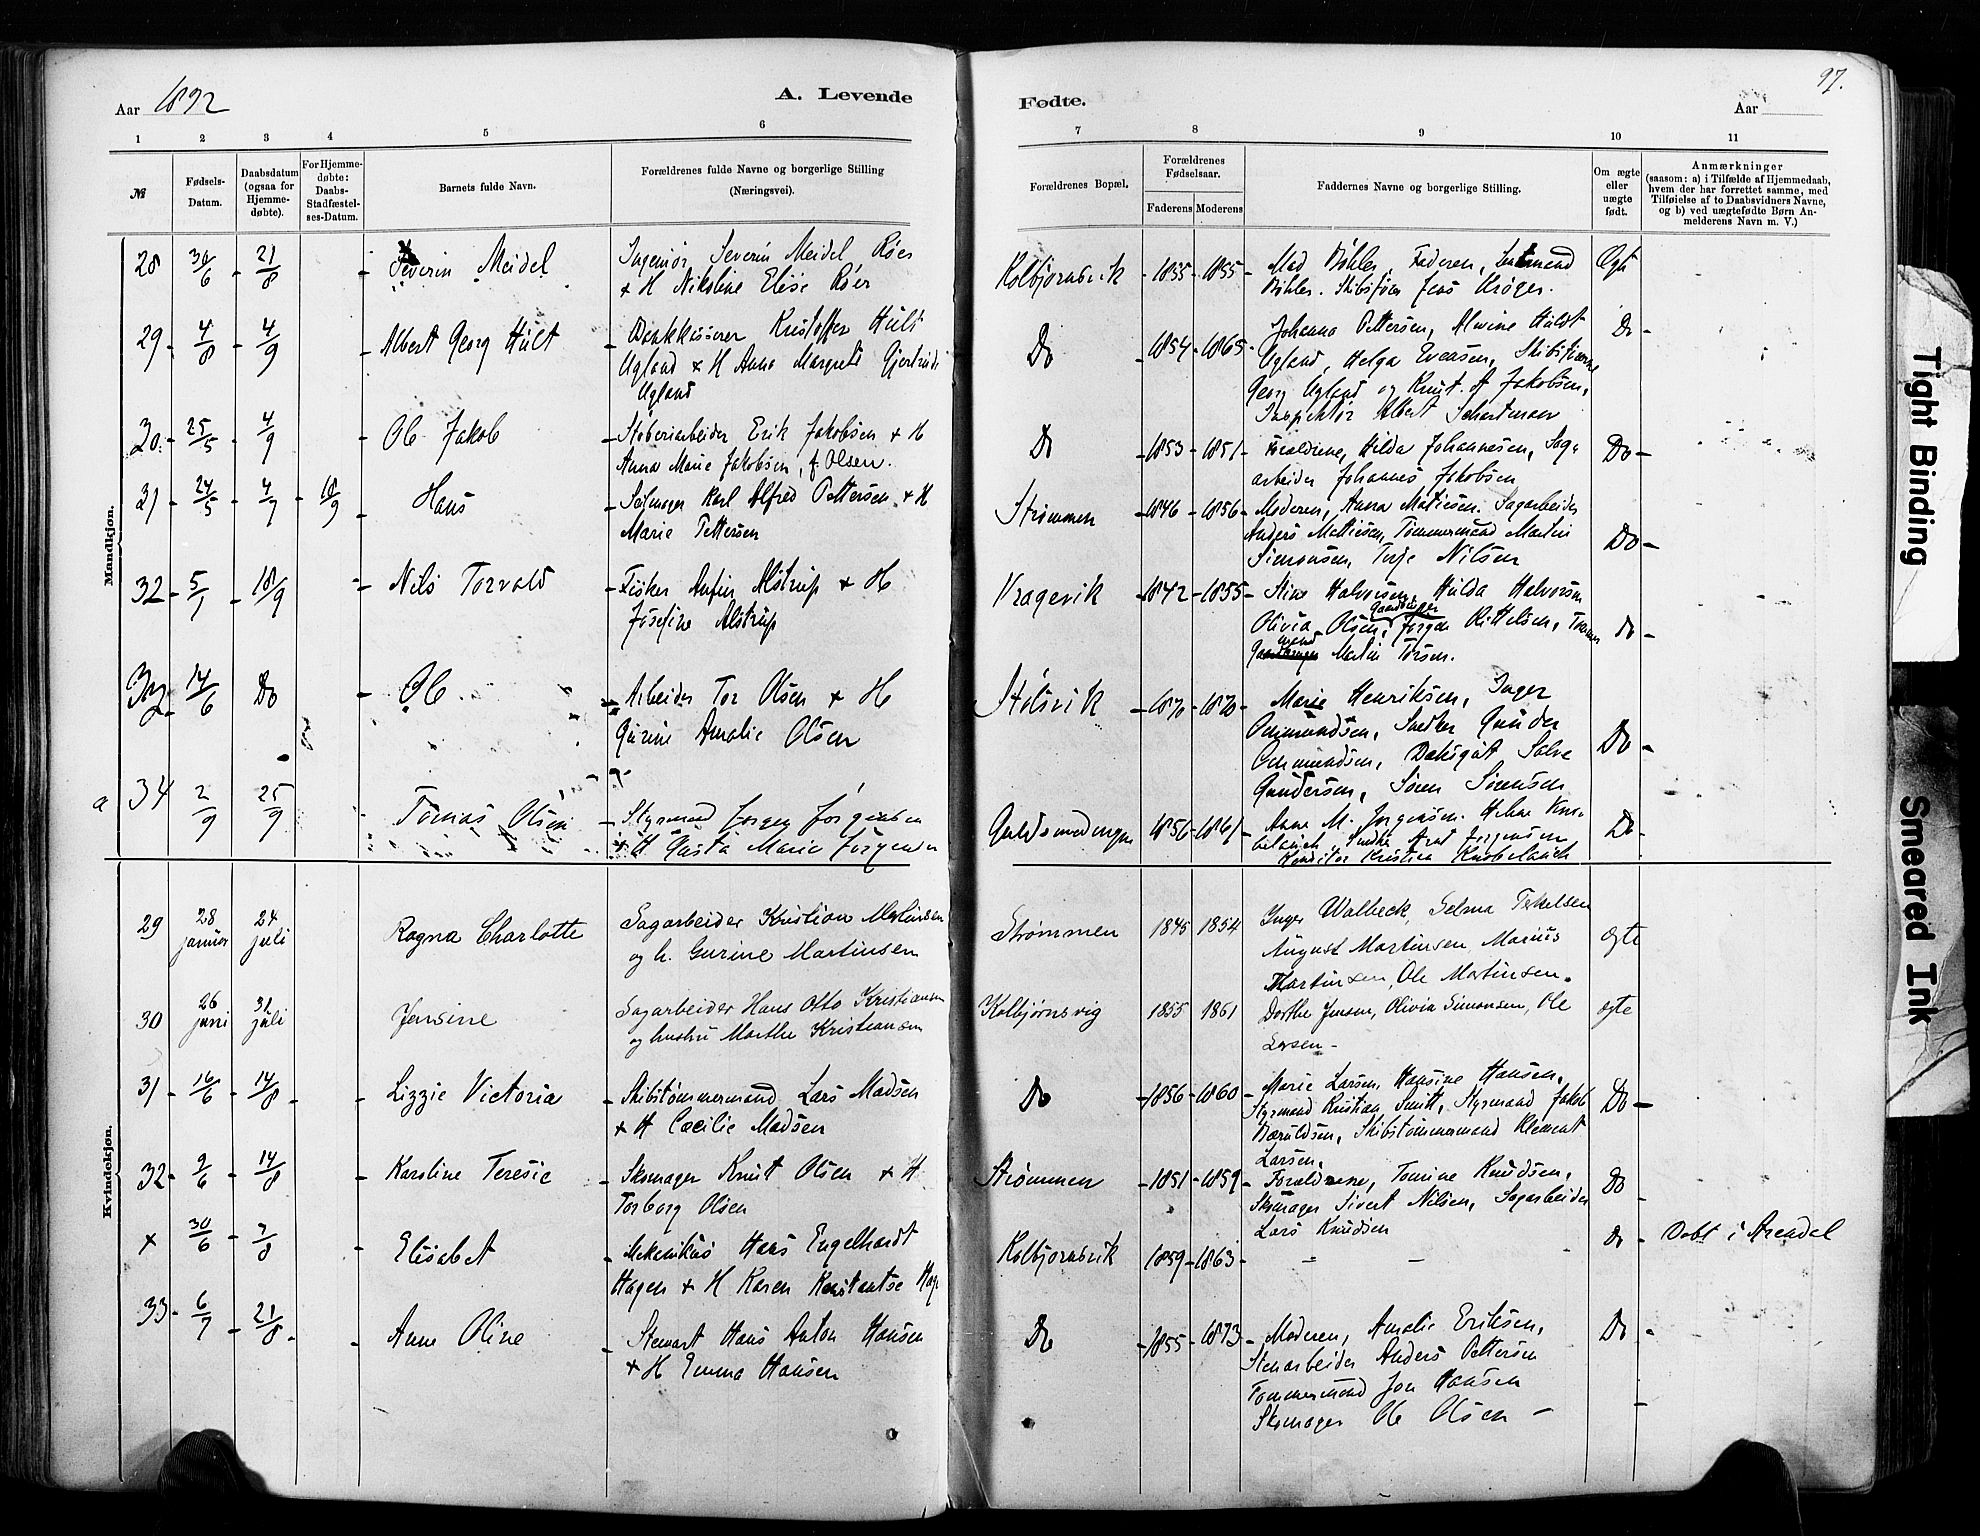 Aar 1892
A. Levende
Fødte.
Aar
97.
1 2 3 4 5 6 7 8 9 10 11
№
Fødsels-Datum.
Daabsdatum (ogsaa for Hjemme-døbte).
For Hjemme-døbte: Daabs-Stadfæstel-ses-Datum.
Barnets fulde Navn.
Forældrenes fulde Navne og borgerlige Stilling (Næringsvei).
Forældrenes Bopæl.
Forældrenes Fødselsaar.
Faderens Moderens
Faddernes Navne og borgerlige Stilling.
Om ægte eller uægte født.
Anmærkninger
(saasom: a) i Tilfælde af Hjemmedaab,
hvem der har forrettet samme, med
Tilføielse af to Daabsvidners Navne,
og b) ved uægtefødte Børn An-
melderens Navn m. V.)
Mandkjøn.
28 30/6 21/8 Severin Meidel
Ingeniør Severin Meidel Røer
+ H Nikoline Elise Røer
Kolbjørnsvik 1855 1855
Mad Bøhler, Faderen,
Bøhler. Skibsfører Jens Krøger.
Ægt
29 4/8 4/9 Albert Georg Hult
Kristoffer Hult
Ugland + H Anna Margrete Gjertrude
Ugland
Do 1854 1865
Johanna Pettersen, Alvine Huldt
Ugland, Helga Evensen, Skibsførerne
Georg Ugland og Knut. A Jakobsen,
Inspektør Albert
Do
30 25/5 4/9 Ole Jakob
Støberiarbeider Erik Jakobsen + H
Anna Marie Jakobsen, f. Olsen.
Do 1853 1851
Forældrene, Hilda Johannesen, Sag-
arbeider Johannes Jakobsen
Do
31 24/5 4/9 18/9 Hans
Seilmager Karl Alfred Pettersen + H
Marie Pettersen
Strømmen 1846 1856
Moderen, Anna Matiesen. Sagarbeider
Anders Mathiesen, Tømmermand Martin
Simonsen, Terje Nilsen
Do
32 5/7 18/9 Nils Torvald
Fisker Anfin Alstrup + H
Josefine Alstrup
Vragevik 1842 1855
Stine Halvorsen, Hulda Halvorsen
Olivia Olsen, Gaardbruger Jørgen Kittelsen, Tømmer
mand Martin Torsen.
Do
33 14/6 Do Ole
Arbeider Tor Olsen + H
Gurine Amalie Olsen
Stølsvik 1870 1870
Marie Henriksen, Inger
Ommundsen, Snedker Gunder
Ommundsen, Salve
Gundersen, Søren Sørensen
Do
a 34 2/9 25/9 Tomas Olsen
Styrmand Jørgen Jørgensen
+ H Gusta Marie Jørgensen
Guldsmedengen 1856 1861
Anna M. Jørgensen. Helene Kno-
belauch, Snedker Arnt Jørgensen
Konditor Kristian Knobelauch
Do
Kvindekjøn.
29 28 januar 24 juli Ragna Charlotte
Sagarbeider Kristian Martinsen
og h. Gurine Martinsen
Strømmen 1845 1854
Inger Walbeck, Selma Terkelsen
August Martinsen Marius
Martinsen, Ole Martinsen.
ægte
30 26 juni 31 juli Jensine
Sagarbeider Hans Otto Kristiansen
og hustru Marthe Kristiansen
Kolbjørnsvig 1855 1861
Dorthe Jensen, Olivia Simonsen, Ole
Larsen -
ægte
31 16/6 14/8 Lizzie Victoria
Skibstømmermand Lars Madsen
+ H Cæcilie Madsen
Do 1856 1860
Marie Larsen, Hansine Hansen,
Styrmand Kristian Smitt, Styrmand Jakob
Bæruldsen, Skibstømmermand Klement
Larsen.
Do
32 9/6 14/8 Karoline Teresie
Skomager Knut Olsen + H
Torborg Olsen
Strømmen 1851 1859
Forældrene, Tomine Knudsen,
Skomager Sivert Nilsen, Sagarbeider
Lars Knudsen
Do
x 30/6 7/8 Elisabet
Mekanikus Hans Engelhardt
Hagen + H Karen Konstantse Hag
Kolbjørnsvik 1859 1863
Do
Døbt i Arendal
33 6/7 21/8 Anne Oline
Stewart Hans Anton Hansen
+ H Emma Hansen
Do 1855 1873
Moderen, Amalie Eriksen,
Stenarbeider Anders Pettersen
Tømmermand Jon Hansen
Skomager Ole Olsen -
Do
Tight Binding
Smeared Ink